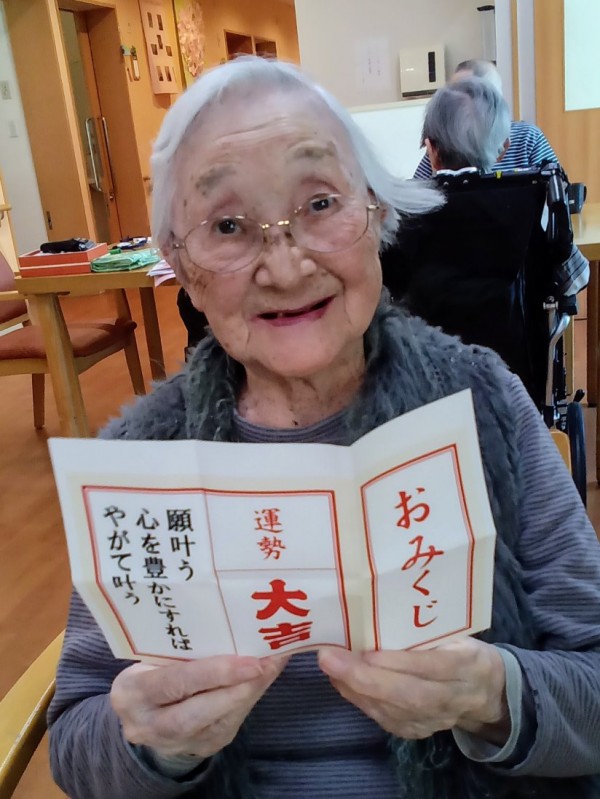 おみくじ
運勢
大吉
願叶う
心を豊かにすれば
やがて叶う